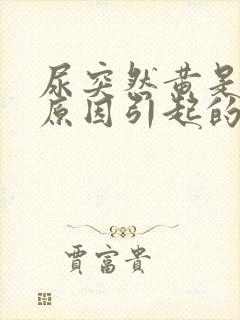 尿突然黄是
原因引起的
賈富貴